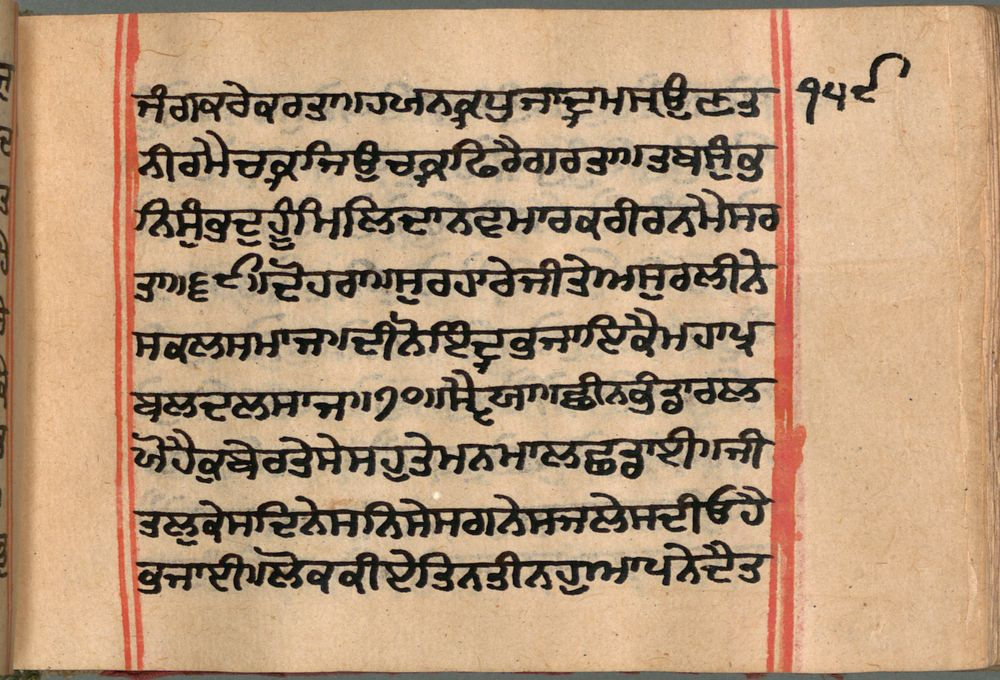 ਜੰਗਕਰੇਕਰਤਾ॥ਹਯਨਕ੍ਰਧੁਜਾਦ੍ਰੁਮਸ੍ਰਉਣਤ ੧੫੯
ਨੀਰਮੈਚਕ੍ਰਜਿਉਚਕ੍ਰਫਿਰੈਗਰਤਾ॥ਤਬਸੁੰਭ
ਨਿਸੁੰਭਦੁਹੂੰਮਿਲਿਦਾਨਵਮਾਰਕਰੀਰਨਮੈਸਰ
ਤਾ॥੬੯॥ਦੋਹਰਾ॥ਸੁਰਹਾਰੇਜੀਤੇਅਸੁਰਲੀਨੇ
ਸਕਲਸਮਾਜ॥ਦੀਨੋਇੰਦ੍ਰਭਜਾਇਕੈਮਹਾਪ੍ਰ
ਬਲਦਲਸਾਜ॥੭੦॥ਸ੍ਵੈਯਾ॥ਛੀਨਭੰਡਾਰਲ
ਯੋਹੈਕੁਬੇਰਤੇਸੇਸਹੁਤੇਮਨਮਾਲਛਡਾਈ॥ਜੀ
ਤਲੁਕੇਸਦਿਨੇਸਨਿਸੇਸਗਨੇਸਜਲੇਸਦੀਓਹੈ
ਭਜਾਈ॥ਲੋਕਕੀਏਤਿਨਤੀਨਹੁਆਪਨੇਦੈਤ